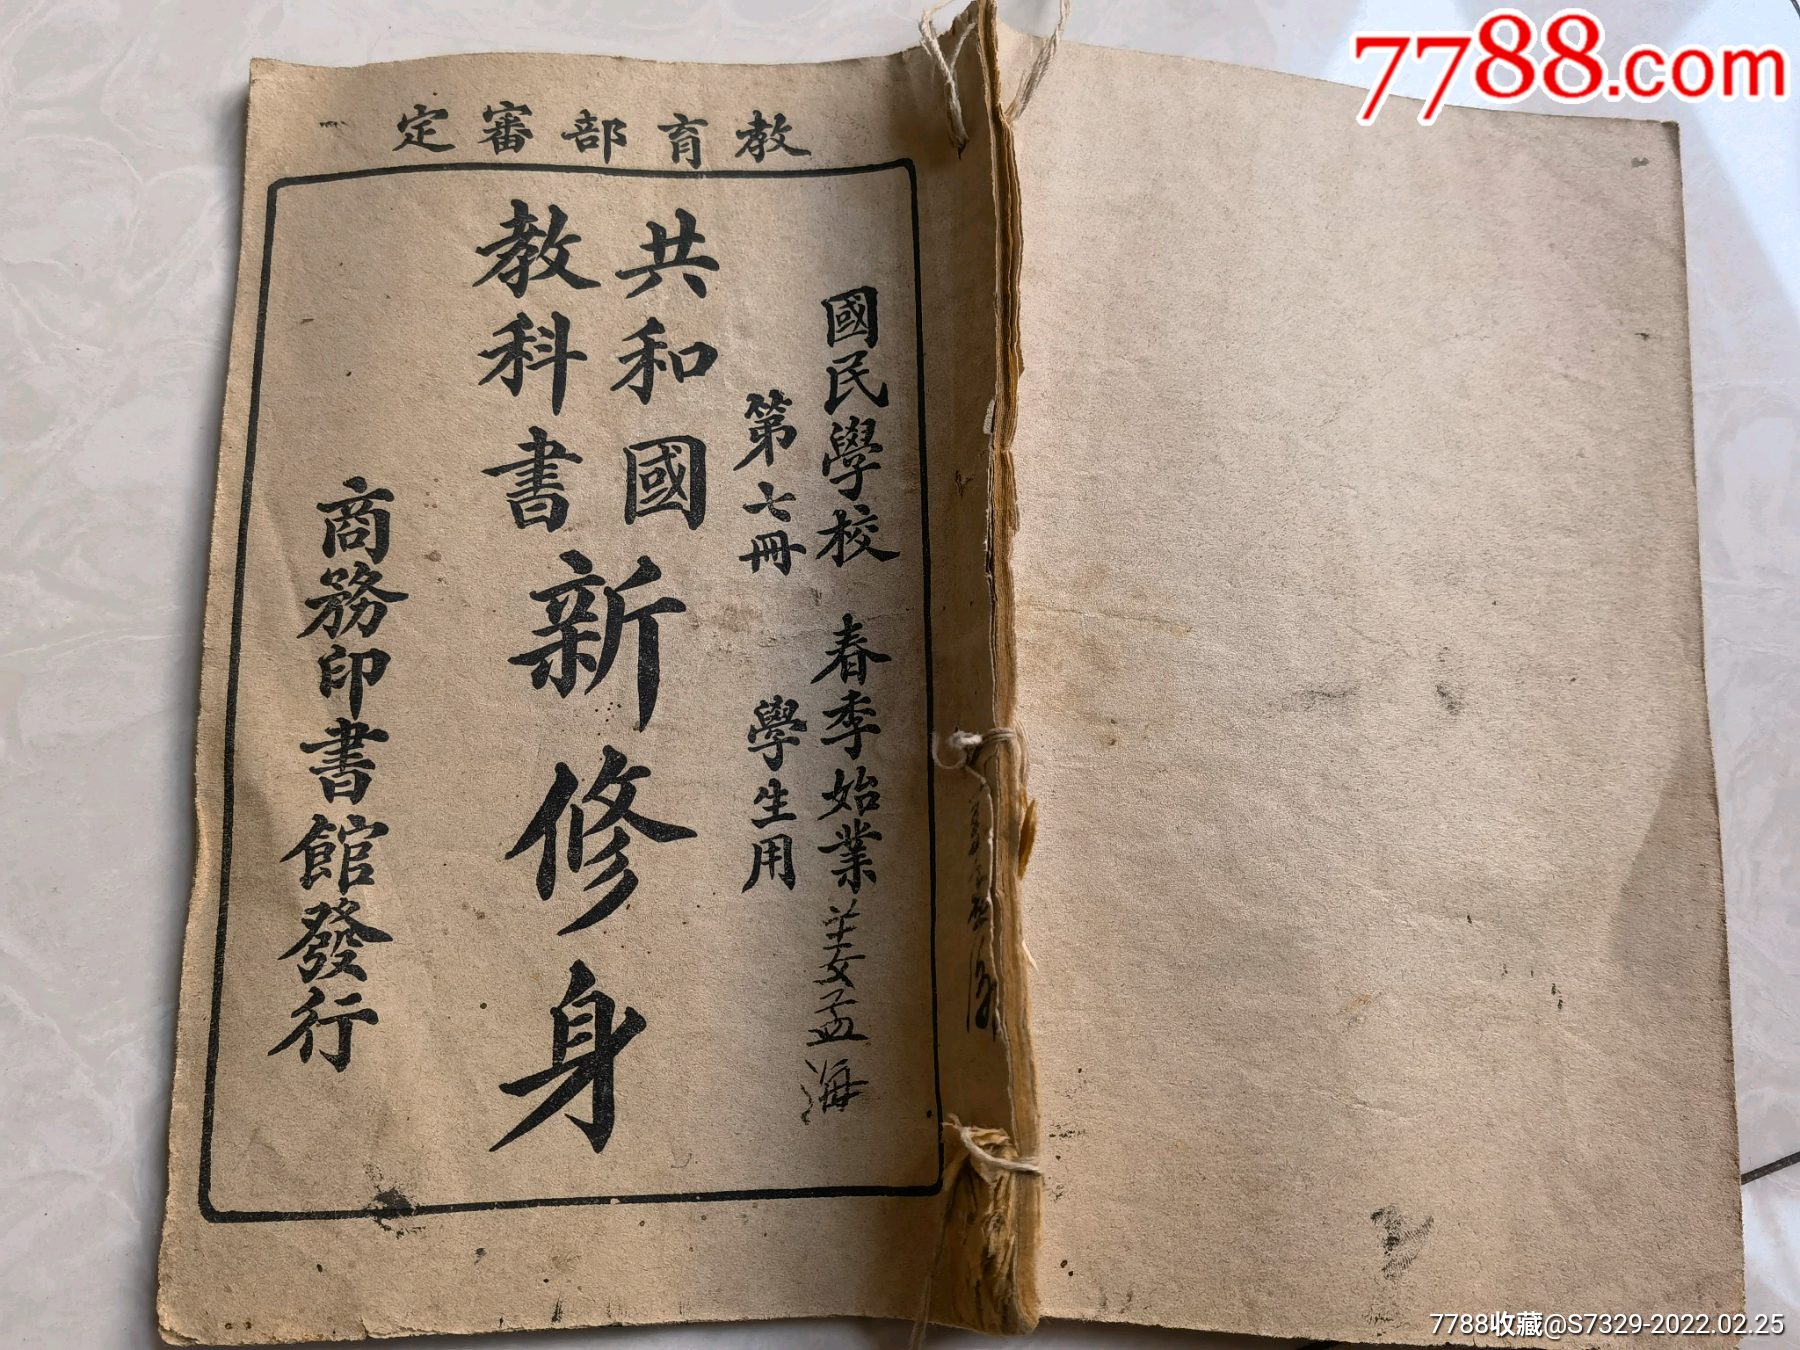 7788.com
教育部審定
國民學校 春季始業
第七冊 學生用
共和國
教科書
新修身
商務印書館發行
姜孟海
7788收藏@S7329-2022.02.25